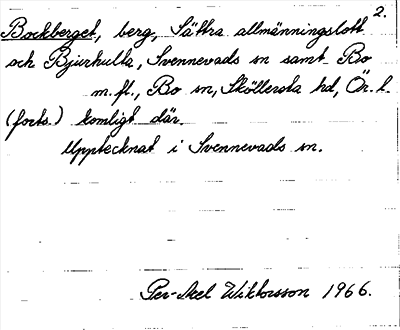 2.
Bockberget, berg, Sättra allmänningslott
och Bjurhulta, Svennevads sn samt Bo
m.fl., Bo sn, Sköllersta hd, Ör. l.
(forts.) komligt där.
Upptecknat i Svennevads sn.
Per-Axel Wiktorsson 1966.